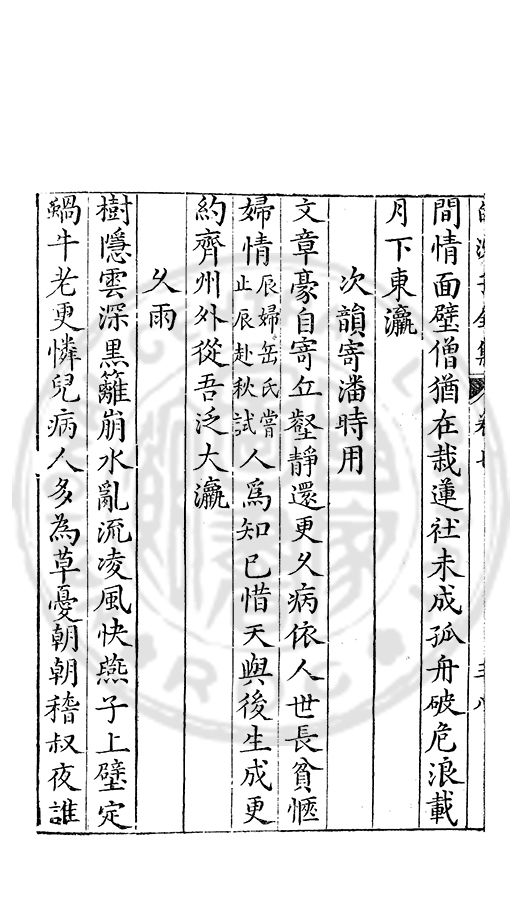 間情面壁僧猶在栽蓮社未成孤舟破危浪載
月下東瀛
次韻寄潘時用
文章豪自寄丘壑靜還更久病依人世長貧愜
婦情辰婦岳氏嘗止辰赴秋試人爲知已惜天與後生成更
約齊州外從吾泛大瀛
久雨
樹隱雲深黒籬崩水亂流凌風快燕子上壁定
蝸牛老更憐兒病人多為草憂朝朝稽叔夜誰